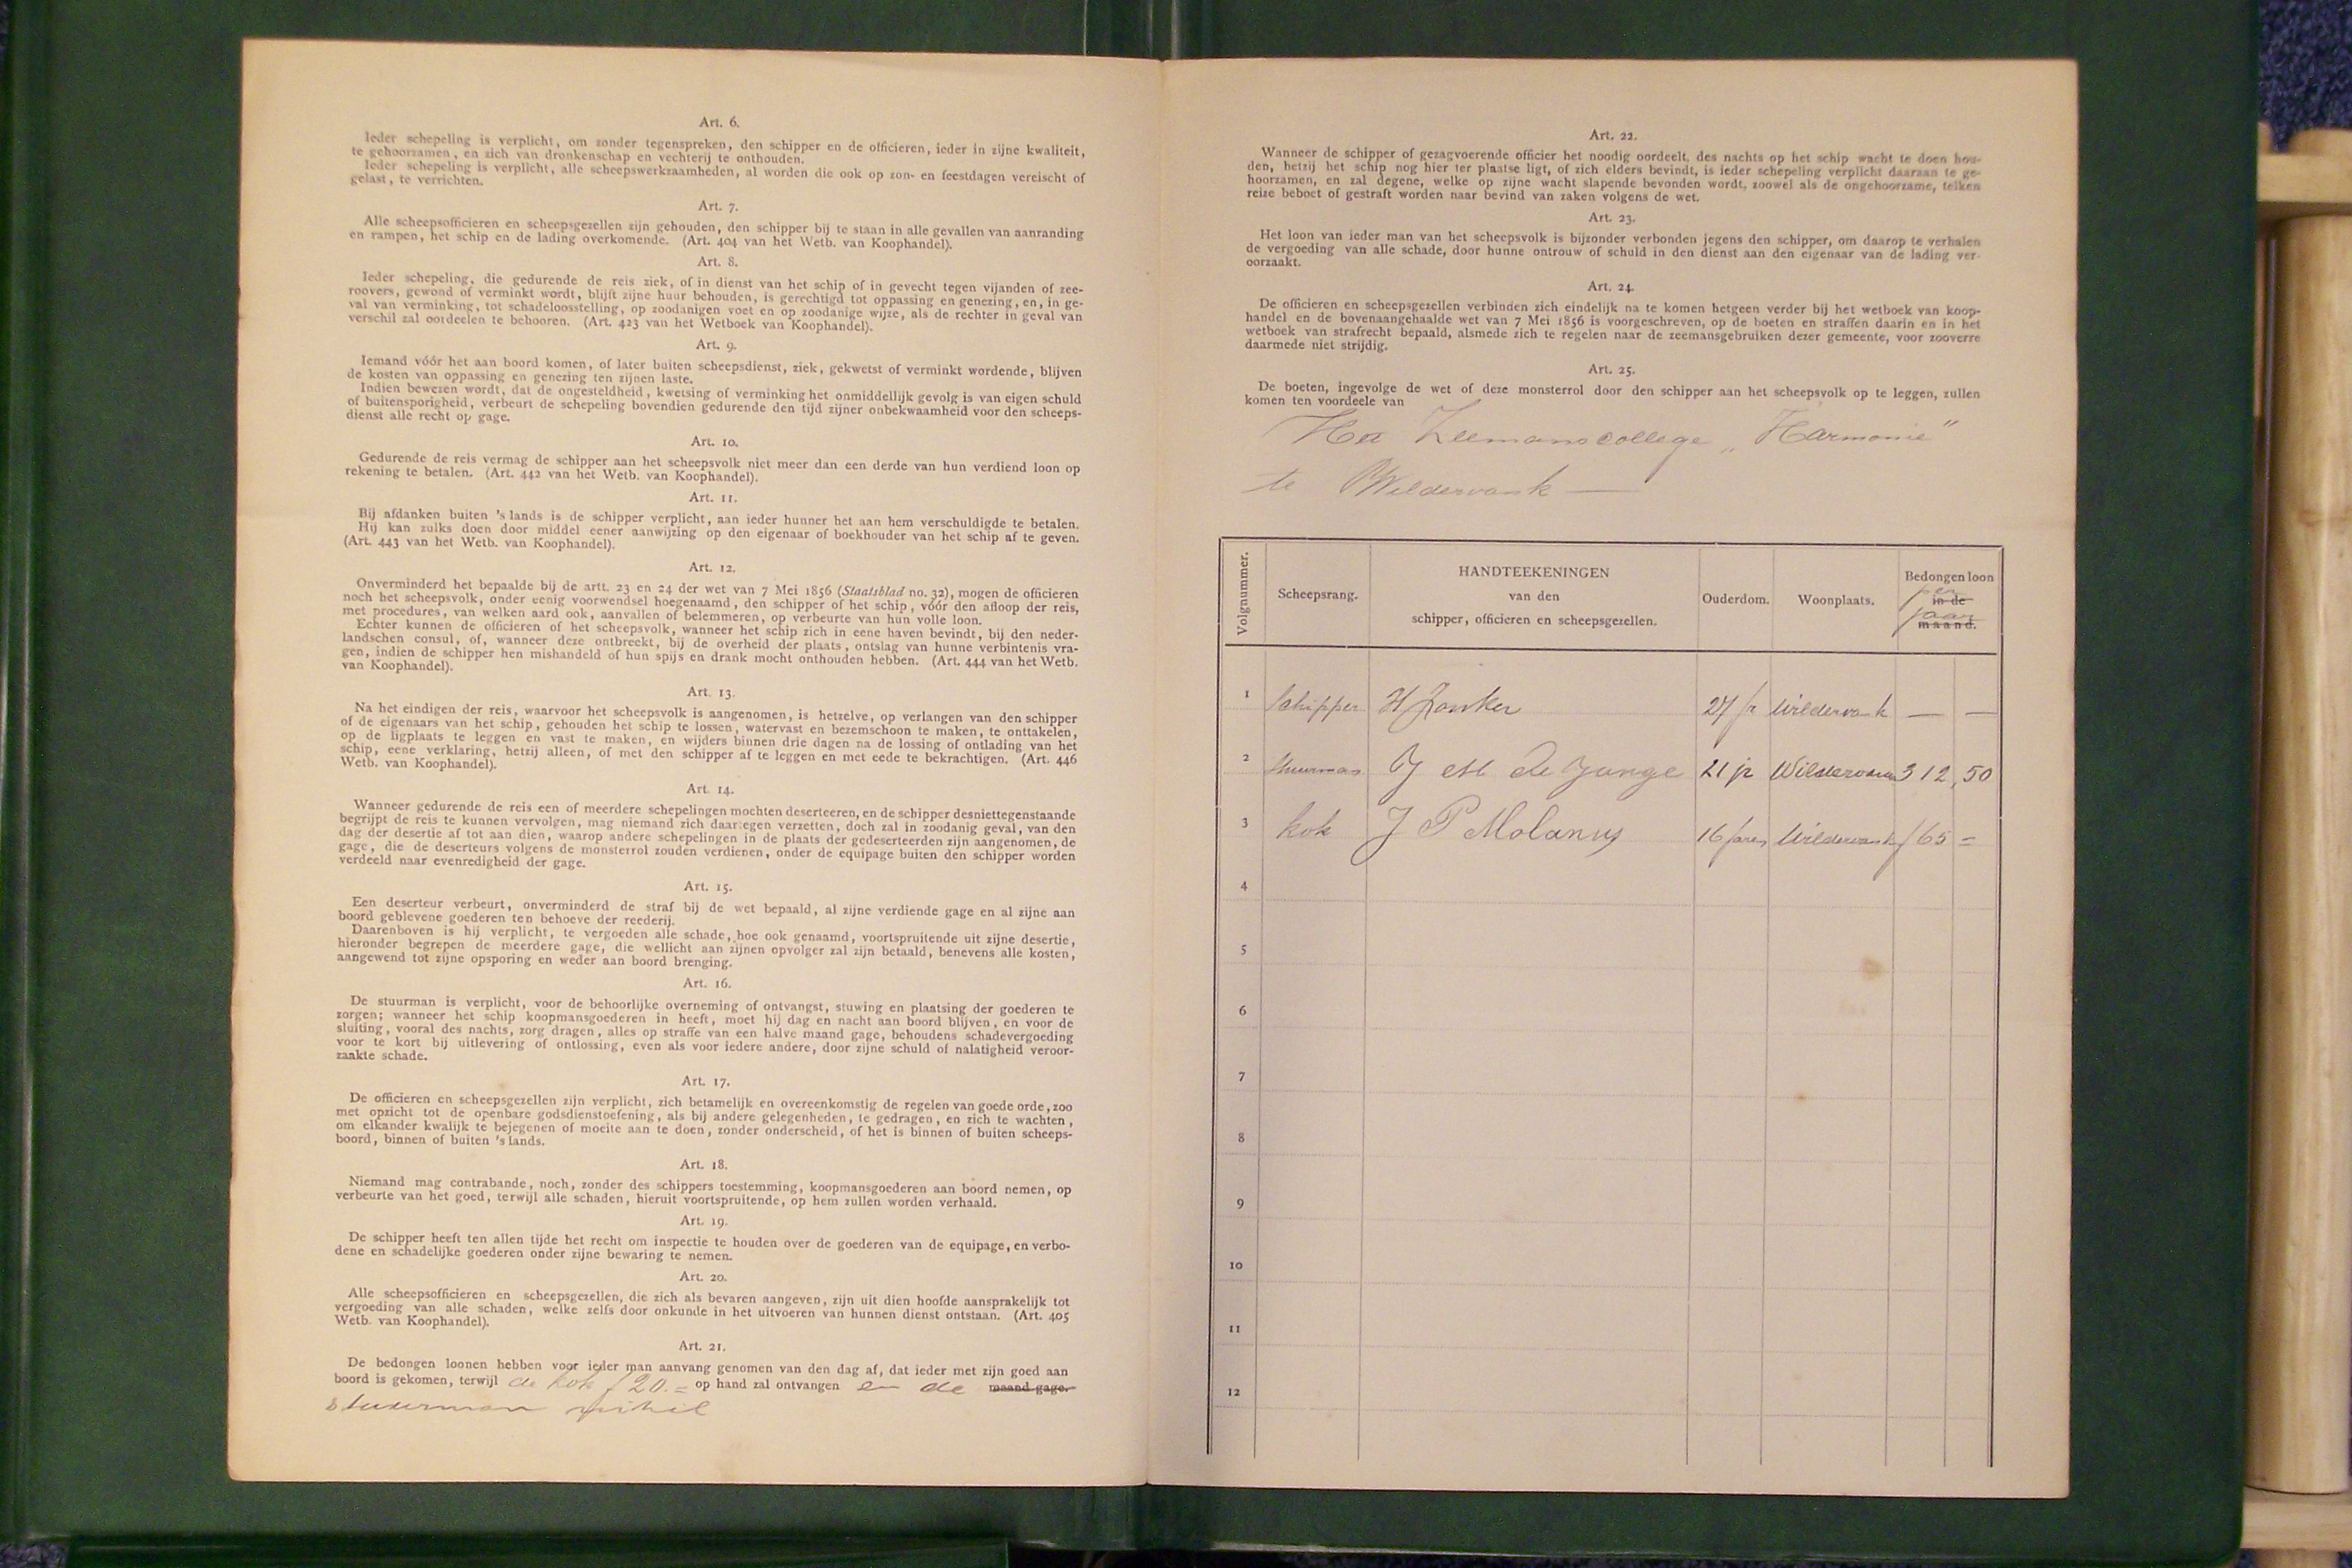 Art. 6.
Ieder schepeling is verplicht, om zonder tegenspreken, den schipper en de officieren, ieder in zijne kwaliteit,
te gehoorzamen, en zich van dronkenschap en vechterij te onthouden.
Ieder schepeling is verplicht, alle scheepswerkzaamheden, al worden die ook op zon- en feestdagen vereischt of
gelast, te verrichten.
Art. 7.
Alle scheepsofficieren en scheepsgezellen zijn gehouden, den schipper bij te staan in alle gevallen van aanranding
en rampen, het schip en de lading overkomende. (Art. 404 van het Wetb. van Koophandel).
Art. 8.
Ieder schepeling, die gedurende de reis ziek, of in dienst van het schip of in gevecht tegen vijanden of zee-
roovers, gewond of verminkt wordt, blijft zijne huur behouden, is gerechtigd tot oppassing en genezing, en, in ge-
val van verminking, tot schadeloosstelling, op zoodanigen voet en op zoodanige wijze, als de rechter in geval van
verschil zal oordeelen te behooren. (Art. 423 van het Wetboek van Koophandel).
Art. 9.
Iemand vóór het aan boord komen, of later buiten scheepsdienst, ziek, gekwetst of verminkt wordende, blijven
de kosten van oppassing en genezing ten zijnen laste.
Indien bewezen wordt, dat de ongesteldheid, kwetsing of verminking het onmiddellijk gevolg is van eigen schuld
of buitensporigheid, verbeurt de schepeling bovendien gedurende den tijd zijner onbekwaamheid voor den scheeps-
dienst alle recht op gage.
Art. 10.
Gedurende de reis vermag de schipper aan het scheepsvolk niet meer dan een derde van hun verdiend loon op
rekening te betalen. (Art. 442 van het Wetb. van Koophandel).
Art. 11.
Bij afdanken buiten 's lands is de schipper verplicht, aan ieder hunner het aan hem verschuldigde te betalen.
Hij kan zulks doen door middel eener aanwijzing op den eigenaar of boekhouder van het schip af te geven.
(Art. 443 van het Wetb. van Koophandel).
Art. 12.
Onverminderd het bepaalde bij de artt. 23 en 24 der wet van 7 Mei 1856 (Staatsblad no. 32), mogen de officieren
noch het scheepsvolk, onder eenig voorwendsel hoegenaamd, den schipper of het schip, vóór den afloop der reis,
met procedures, van welken aard ook, aanvallen of belemmeren, op verbeurte van hun volle loon.
Echter kunnen de officieren of het scheepsvolk, wanneer het schip zich in eene haven bevindt, bij den neder-
landschen consul, of, wanneer deze ontbreekt, bij de overheid der plaats, ontslag van hunne verbintenis vra-
gen, indien de schipper hen mishandeld of hun spijs en drank mocht onthouden hebben. (Art. 444 van het Wetb.
van Koophandel).
Art. 13.
Na het eindigen der reis, waarvoor het scheepsvolk is aangenomen, is hetzelve, op verlangen van den schipper
of de eigenaars van het schip, gehouden het schip te lossen, watervast en bezemschoon te maken, te onttakelen,
op de ligplaats te leggen en vast te maken, en wijders binnen drie dagen na de lossing of ontlading van het
schip, eene verklaring, hetzij alleen, of met den schipper af te leggen en met eede te bekrachtigen. (Art. 446
Wetb. van Koophandel).
Art. 14.
Wanneer gedurende de reis een of meerdere schepelingen mochten deserteeren, en de schipper desniettegenstaande
begrijpt de reis te kunnen vervolgen, mag niemand zich daartegen verzetten, doch zal in zoodanig geval, van den
dag der desertie af tot aan dien, waarop andere schepelingen in de plaats der gedeserteerden zijn aangenomen, de
gage, die de deserteurs volgens de monsterrol zouden verdienen, onder de equipage buiten den schipper worden
verdeeld naar evenredigheid der gage.
Art. 15.
Een deserteur verbeurt, onverminderd de straf bij de wet bepaald, al zijne verdiende gage en al zijne aan
boord geblevene goederen ten behoeve der reederij.
Daarenboven is hij verplicht, te vergoeden alle schade, hoe ook genaamd, voortspruitende uit zijne desertie,
hieronder begrepen de meerdere gage, die wellicht aan zijnen opvolger zal zijn betaald, benevens alle kosten,
aangewend tot zijne opsporing en weder aan boord brenging.
Art. 16.
De stuurman is verplicht, voor de behoorlijke overneming of ontvangst, stuwing en plaatsing der goederen te
zorgen; wanneer het schip koopmansgoederen in heeft, moet hij dag en nacht aan boord blijven, en voor de
sluiting, vooral des nachts, zorg dragen, alles op straffe van een halve maand gage, behoudens schadevergoeding
voor te kort bij uitlevering of ontlossing, even als voor iedere andere, door zijne schuld of nalatigheid veroor-
zaakte schade.
Art. 17.
De officieren en scheepsgezellen zijn verplicht, zich betamelijk en overeenkomstig de regelen van goede orde, zoo
met opzicht tot de openbare godsdienstoefening, als bij andere gelegenheden, te gedragen, en zich te wachten,
om elkander kwalijk te bejegenen of moeite aan te doen, zonder onderscheid, of het is binnen of buiten scheeps-
boord, binnen of buiten 's lands.
Art. 18.
Niemand mag contrabande, noch, zonder des schippers toestemming, koopmansgoederen aan boord nemen, op
verbeurte van het goed, terwijl alle schaden, hieruit voortspruitende, op hem zullen worden verhaald.
Art. 19.
De schipper heeft ten allen tijde het recht om inspectie te houden over de goederen van de equipage, en verbo-
dene en schadelijke goederen onder zijne bewaring te nemen.
Art. 20.
Alle scheepsofficieren en scheepsgezellen, die zich als bevaren aangeven, zijn uit dien hoofde aansprakelijk tot
vergoeding van alle schaden, welke zelfs door onkunde in het uitvoeren van hunnen dienst ontstaan. (Art. 405
Wetb. van Koophandel).
Art. 21.
De bedongen loonen hebben voor ieder man aanvang genomen van den dag af, dat ieder met zijn goed aan
boord is gekomen, terwijl de kok f 20.= op hand zal ontvangen en de maand gage.
stuurman nihil
Art. 22.
Wanneer de schipper of gezagvoerende officier het noodig oordeelt, des nachts op het schip wacht te doen hou-
den, hetzij het schip nog hier ter plaatse ligt, of zich elders bevindt, is ieder schepeling verplicht daaraan te ge-
hoorzamen, en zal degene, welke op zijne wacht slapende bevonden wordt, zoowel als de ongehoorzame, telken
reize beboet of gestraft worden naar bevind van zaken volgens de wet.
Art. 23.
Het loon van ieder man van het scheepsvolk is bijzonder verbonden jegens den schipper, om daarop te verhalen
de vergoeding van alle schade, door hunne ontrouw of schuld in den dienst aan den eigenaar van de lading ver-
oorzaakt.
Art. 24.
De officieren en scheepsgezellen verbinden zich eindelijk na te komen hetgeen verder bij het wetboek van koop-
handel en de bovenaangehaalde wet van 7 Mei 1856 is voorgeschreven, op de boeten en straffen daarin en in het
wetboek van strafrecht bepaald, alsmede zich te regelen naar de zeemansgebruiken dezer gemeente, voor zooverre
daarmede niet strijdig.
Art. 25.
De boeten, ingevolge de wet of deze monsterrol door den schipper aan het scheepsvolk op te leggen, zullen
komen ten voordeele van
Het Zeemanscollege „Harmonie"
te Wildervank —
Volgnummer.
Scheepsrang.
HANDTEEKENINGEN
van den
schipper, officieren en scheepsgezellen.
Ouderdom.
Woonplaats.
Bedongen loon
per
in de
jaar
maand.
1 Schipper H Jonker 27 jr Wildervank — —
2 Stuurman J M de Jonge 21 jr Wildervank 312,50
3 kok J P Molanus 16 jaren Wildervank f 65 =
4
5
6
7
8
9
10
11
12